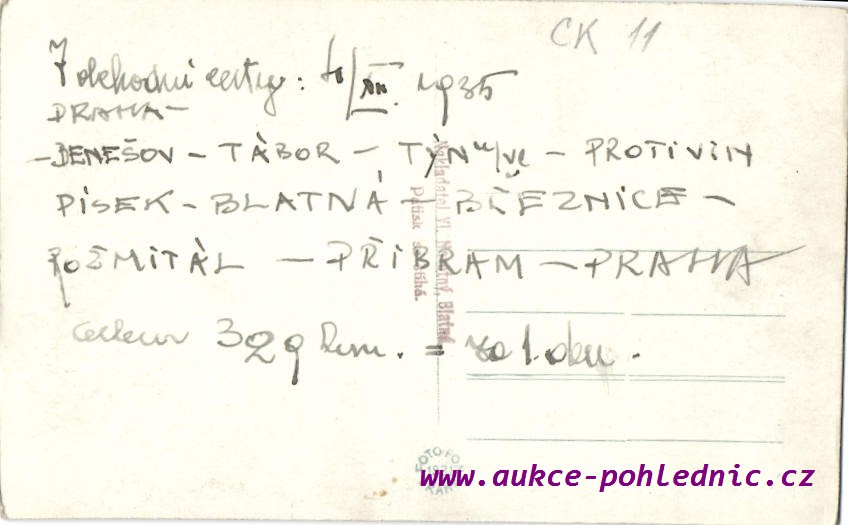 CK 11
Z obchodní cesty: 10/XII. 1935
PRAHA –
– BENEŠOV – TÁBOR – TÝN n/Vl – PROTIVÍN
PÍSEK – BLATNÁ – BŘEZNICE –
ROŽMITÁL – PŘÍBRAM – PRAHA
Celkem 329 km. = za 1. den.
Nakladatel Vl. Blatná.
www.aukce-pohlednic.cz